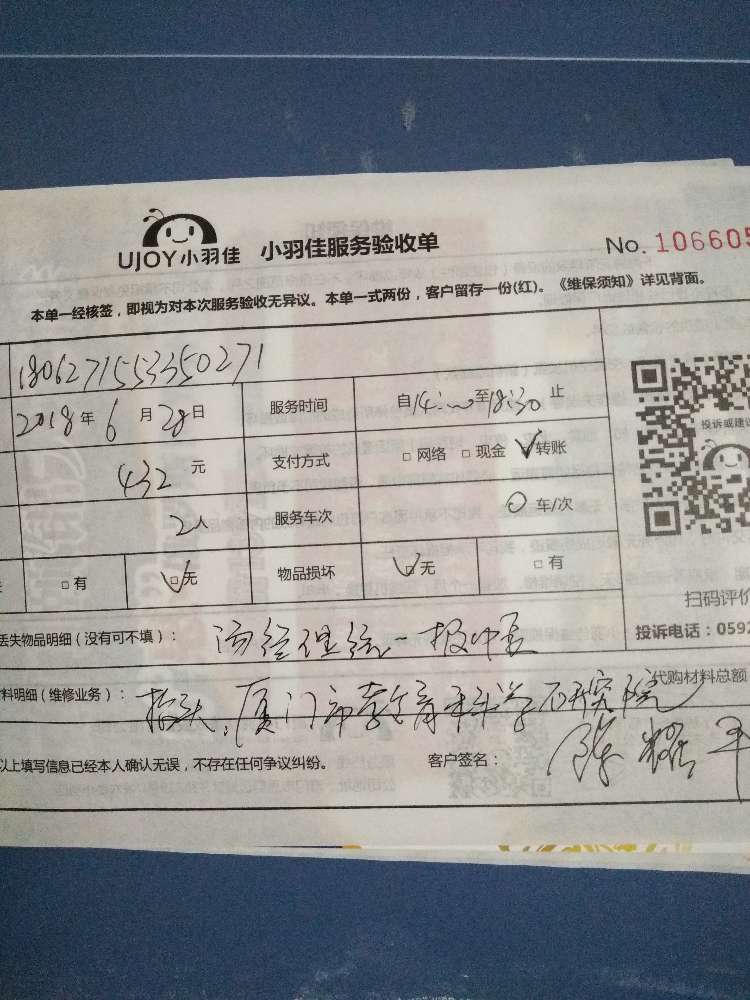 UJOY小羽佳 小羽佳服务验收单 No. 106605
本单一经核签，即视为对本次服务验收无异议。本单一式两份，客户留存一份(红)。《维保须知》详见背面。
1806271553350271
2018年6月28日 服务时间 自14:00至18:30止
投诉或建议
432元 支付方式 □网络 □现金 √转账
2人 服务车次 0车/次
□有 √□无 物品损坏 √□无 □有
扫码评价
丢失物品明细（没有可不填）： 汤经理统一报 投诉电话：0592
料明细（维修业务）： 抬头：厦门市教育科学研究院 代购材料总额
以上填写信息已经本人确认无误，不存在任何争议纠纷。 客户签名： 陈耀平